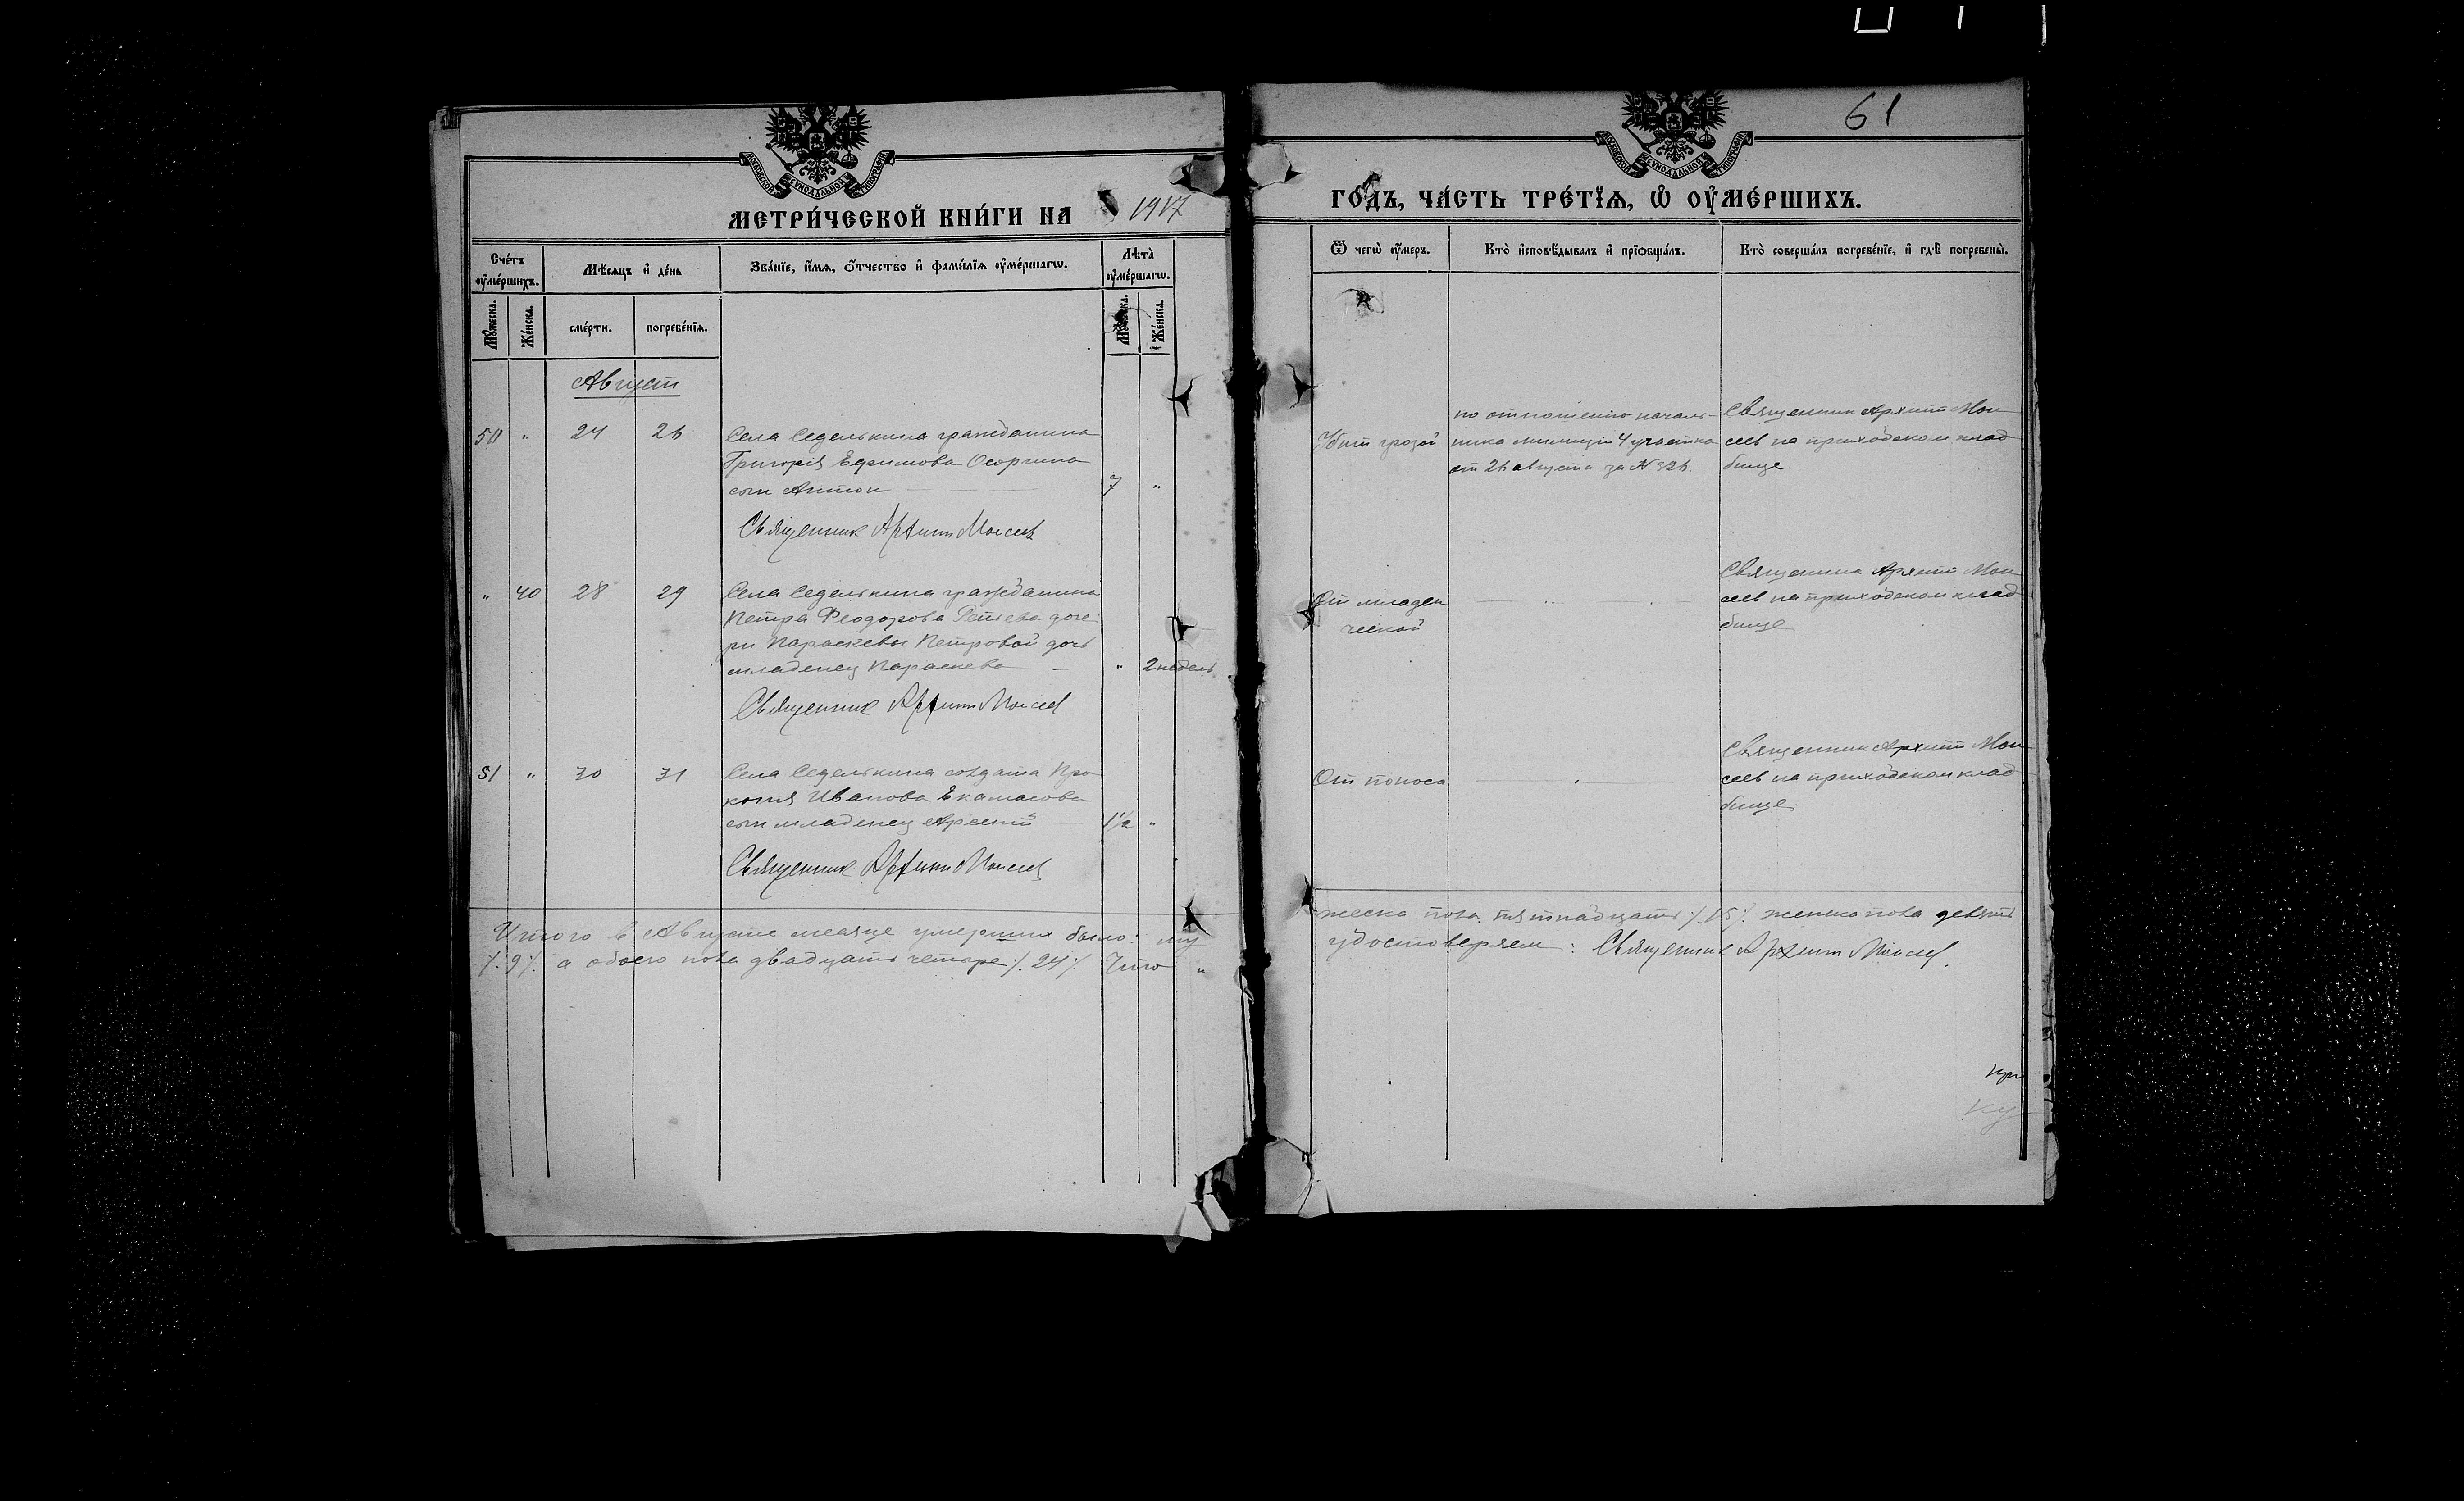 61
МОСКОВСКОЙ СѴНОДАЛЬНОЙ ТИПОГРАФІИ
МОСКОВСКОЙ СѴНОДАЛЬНОЙ ТИПОГРАФІИ
МЕТРИ́ЧЕСКОЙ КНИ́ГИ НА 1917
ГО́ДЪ, ЧА́СТЬ ТРЕ́ТЇѦ, Ѽ ОУ҆МЕ́РШИХЪ.
Сче́тъ оу҆ме́ршихъ.
Мꙋ́жеска.
Же́нска.
Мѣ́сѧцъ и҆ де́нь
сме́рти.
погребе́нїѧ.
Зва́нїе, и҆́мѧ, ѻ҆́тчество и҆ фами́лїѧ оу҆ме́ршагѡ.
Лѣ́та оу҆ме́ршагѡ.
Мꙋ́жеска.
Же́нска.
Ѿ чегѡ̀ оу҆́меръ.
Кто̀ и҆сповѣ́дывалъ и҆ прїѻбща́лъ.
Кто̀ соверша́лъ погребе́нїе, и҆ гдѣ̀ погребены̀.
Август
50 " 24 26
Села Седелькина гражданина
Григорія Ефимова Осоргина
сын Антон 7 "
Священник Архипп Моисеев
Убит грозой
по отношению началь-
ника милиціи 4 участка
от 26 августа за № 326.
Священник Архипп Мои
сеев на приходском клад
бище.
" 40 28 29
Села Седелькина гражданина
Петра Феодорова Репьева доче
ри Параскевы Петровой дочь
младенец Параскева " 2 недель
Священник Архипп Моисеев
От младен
ческой
Священник Архипп Мои
сеев на приходском клад
бище
51 " 30 31
Села Седелькина солдата Про
копия Иванова Екамасова
сын младенец Арсений 1½ "
Священник Архипп Моисеев
От поноса
Священник Архипп Мои
сеев на приходском клад
бище.
Итого в Августе месяце умерших было: му
жеска пола пятнадцать ⁒ 15 ⁒ женска пола девять
⁒ 9 ⁒ а обоего пола двадцать четыре ⁒ 24 ⁒ Что "
удостоверяем: Священник Архипп Моисеев.